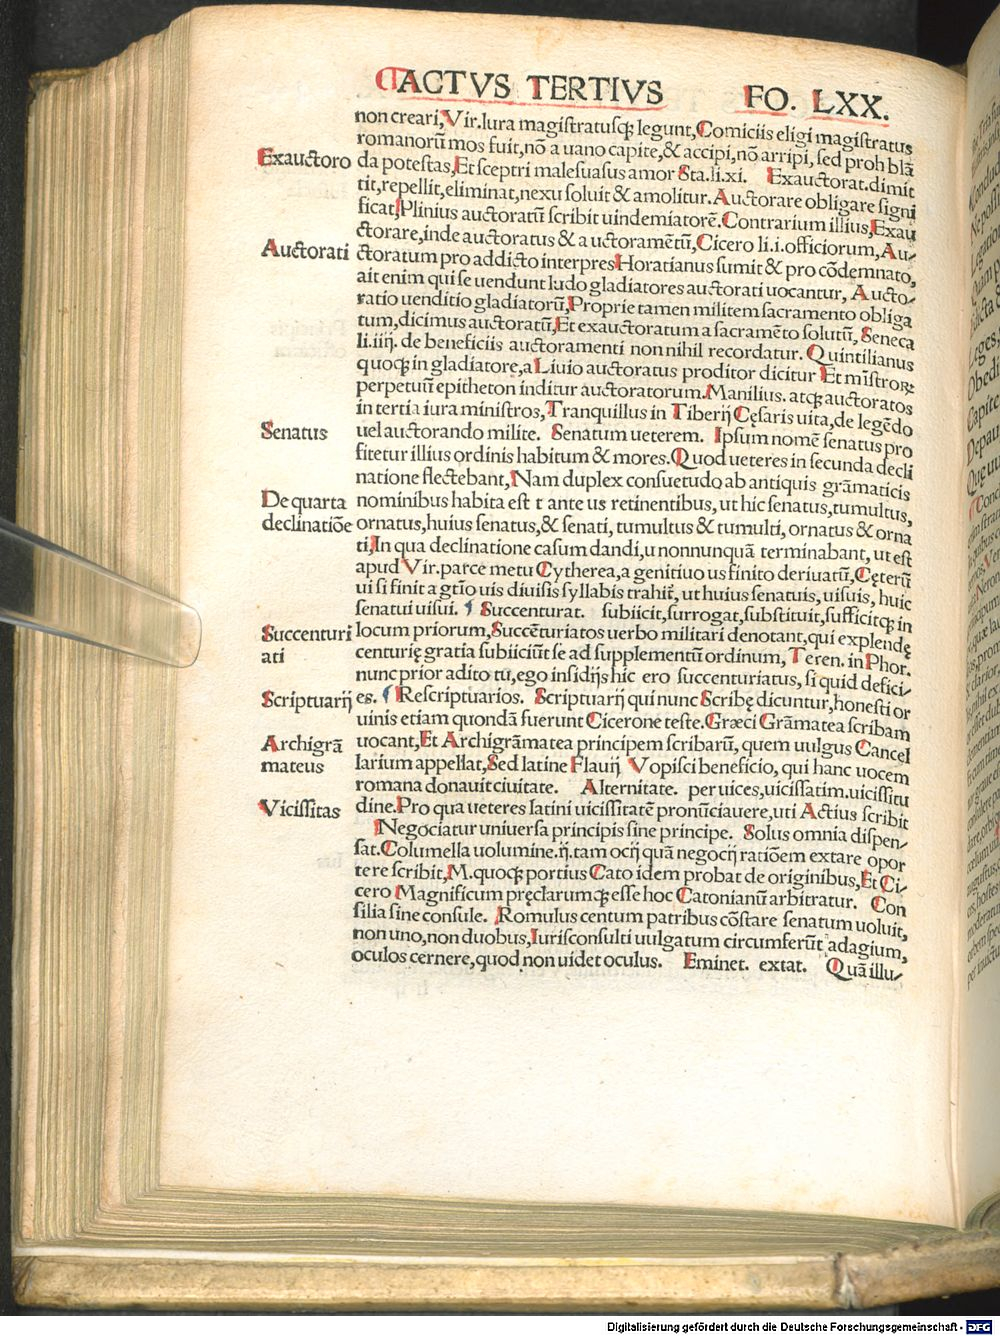 ACTVS TERTIVS FO. LXX.
non creari, Vir. Iura magistratusqꝫ legunt, Comiciis eligi magistratus
romanorū mos fuit, nō a uano capite, & accipi, nō arripi, sed proh blā
Exauctoro
da potestas, Et sceptri malesuasus amor Sta. li. xi. Exauctorat. dimit
tit, repellit, eliminat, nexu soluit & amolitur. Auctorare obligare signi
ficat, Plinius auctoratū scribit uindemiatorē. Contrarium illius, Exau
ctorare, inde auctoratus & auctoramētū, Cicero li. i. officiorum, Au-
Auctorati
ctoratum pro addicto interpres Horatianus sumit & pro cōdemnato,
ait enim qui se uendunt ludo gladiatores auctorati uocantur, Aucto-
ratio uenditio gladiatorū, Proprie tamen militem sacramento obliga
tum, dicimus auctoratū, Et exauctoratum a sacramēto solutū, Seneca
li. iiij. de beneficiis auctoramenti non nihil recordatur. Quintilianus
quoqꝫ in gladiatore, a Liuio auctoratus proditor dicitur Et mīstroꝝ
perpetuū epitheton inditur auctoratorum. Manilius. atqꝫ auctoratos
in tertia iura ministros, Tranquillus in Tiberij Cęsaris uita, de legēdo
Senatus
uel auctorando milite. Senatum ueterem. Ipsum nomē senatus pro
fitetur illius ordinis habitum & mores. Quod ueteres in secunda decli
natione flectebant, Nam duplex consuetudo ab antiquis grāmaticis
De quarta
nominibus habita est t ante us retinentibus, ut hic senatus, tumultus,
declinatiōe
ornatus, huius senatus, & senati, tumultus & tumulti, ornatus & orna
ti, In qua declinatione casum dandi, u nonnunquā terminabant, ut est
apud Vir. parce metu Cytherea, a genitiuo us finito deriuatū, Cęterū
ui si finit a gtīo uis diuisis syllabis trahit̄, ut huius senatuis, uisuis, huic
senatui uisui. ¶ Succenturat. subiicit, surrogat, substituit, sufficitqꝫ in
Succenturi
locum priorum, Succēturiatos uerbo militari denotant, qui explendę
ati
centurię gratia subiiciūt se ad supplementū ordinum, Teren. in Phor.
nunc prior adito tu, ego insidijs hic ero succenturiatus, si quid defici-
Scriptuarij
es. ¶ Rescriptuarios. Scriptuarij qui nunc Scribę dicuntur, honesti or
uinis etiam quondā fuerunt Cicerone teste. Græci Grāmatea scribam
Archigrā
uocant, Et Archigrāmatea principem scribarū, quem uulgus Cancel
mateus
larium appellat, Sed latine Flauij Vopisci beneficio, qui hanc uocem
romana donauit ciuitate. Alternitate. per uices, uicissatim. uicissitu
Vicissitas
dine. Pro qua ueteres latini uicissitatē pronūciauere, uti Actius scribit
Negociatur uniuersa principis sine principe. Solus omnia dispen-
sat. Columella uolumine. ij. tam ocij quā negocij ratiōem extare opor
tere scribit, M. quoqꝫ portius Cato idem probat de originibus, Et Ci-
cero Magnificum pręclarumqꝫ esse hoc Catonianū arbitratur. Con
silia sine consule. Romulus centum patribus cōstare senatum uoluit,
non uno, non duobus, Iurisconsulti uulgatum circumferūt adagium,
oculos cernere, quod non uidet oculus. Eminet. extat. Quā illu-
Digitalisierung gefördert durch die Deutsche Forschungsgemeinschaft - DFG